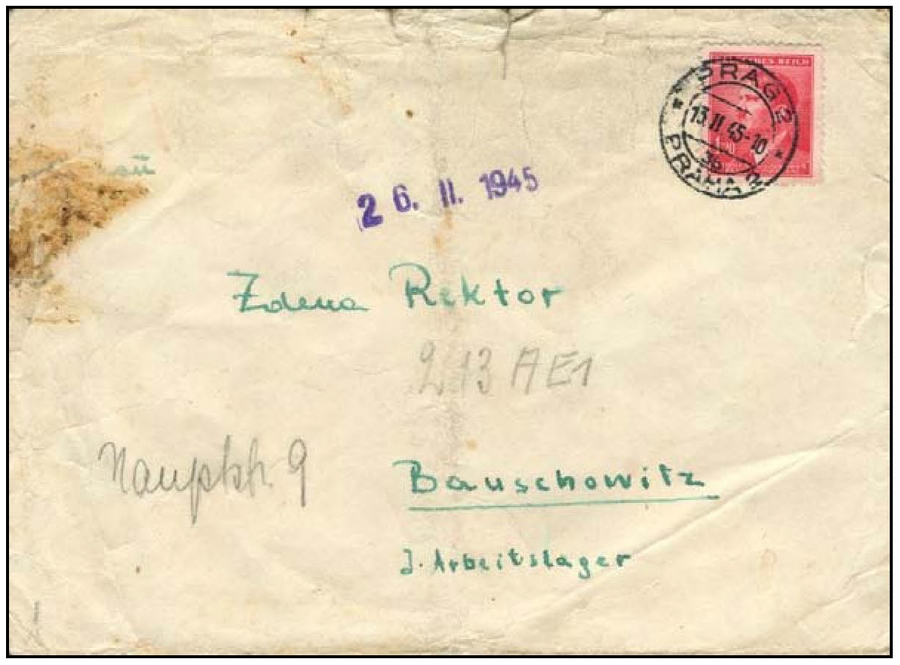 PRAG 2
13.II 45-10
PRAHA 2
26. II. 1945
Zdena Rektor
213 AE1
Hauptstr. 9
Bauschowitz
J. Arbeitslager